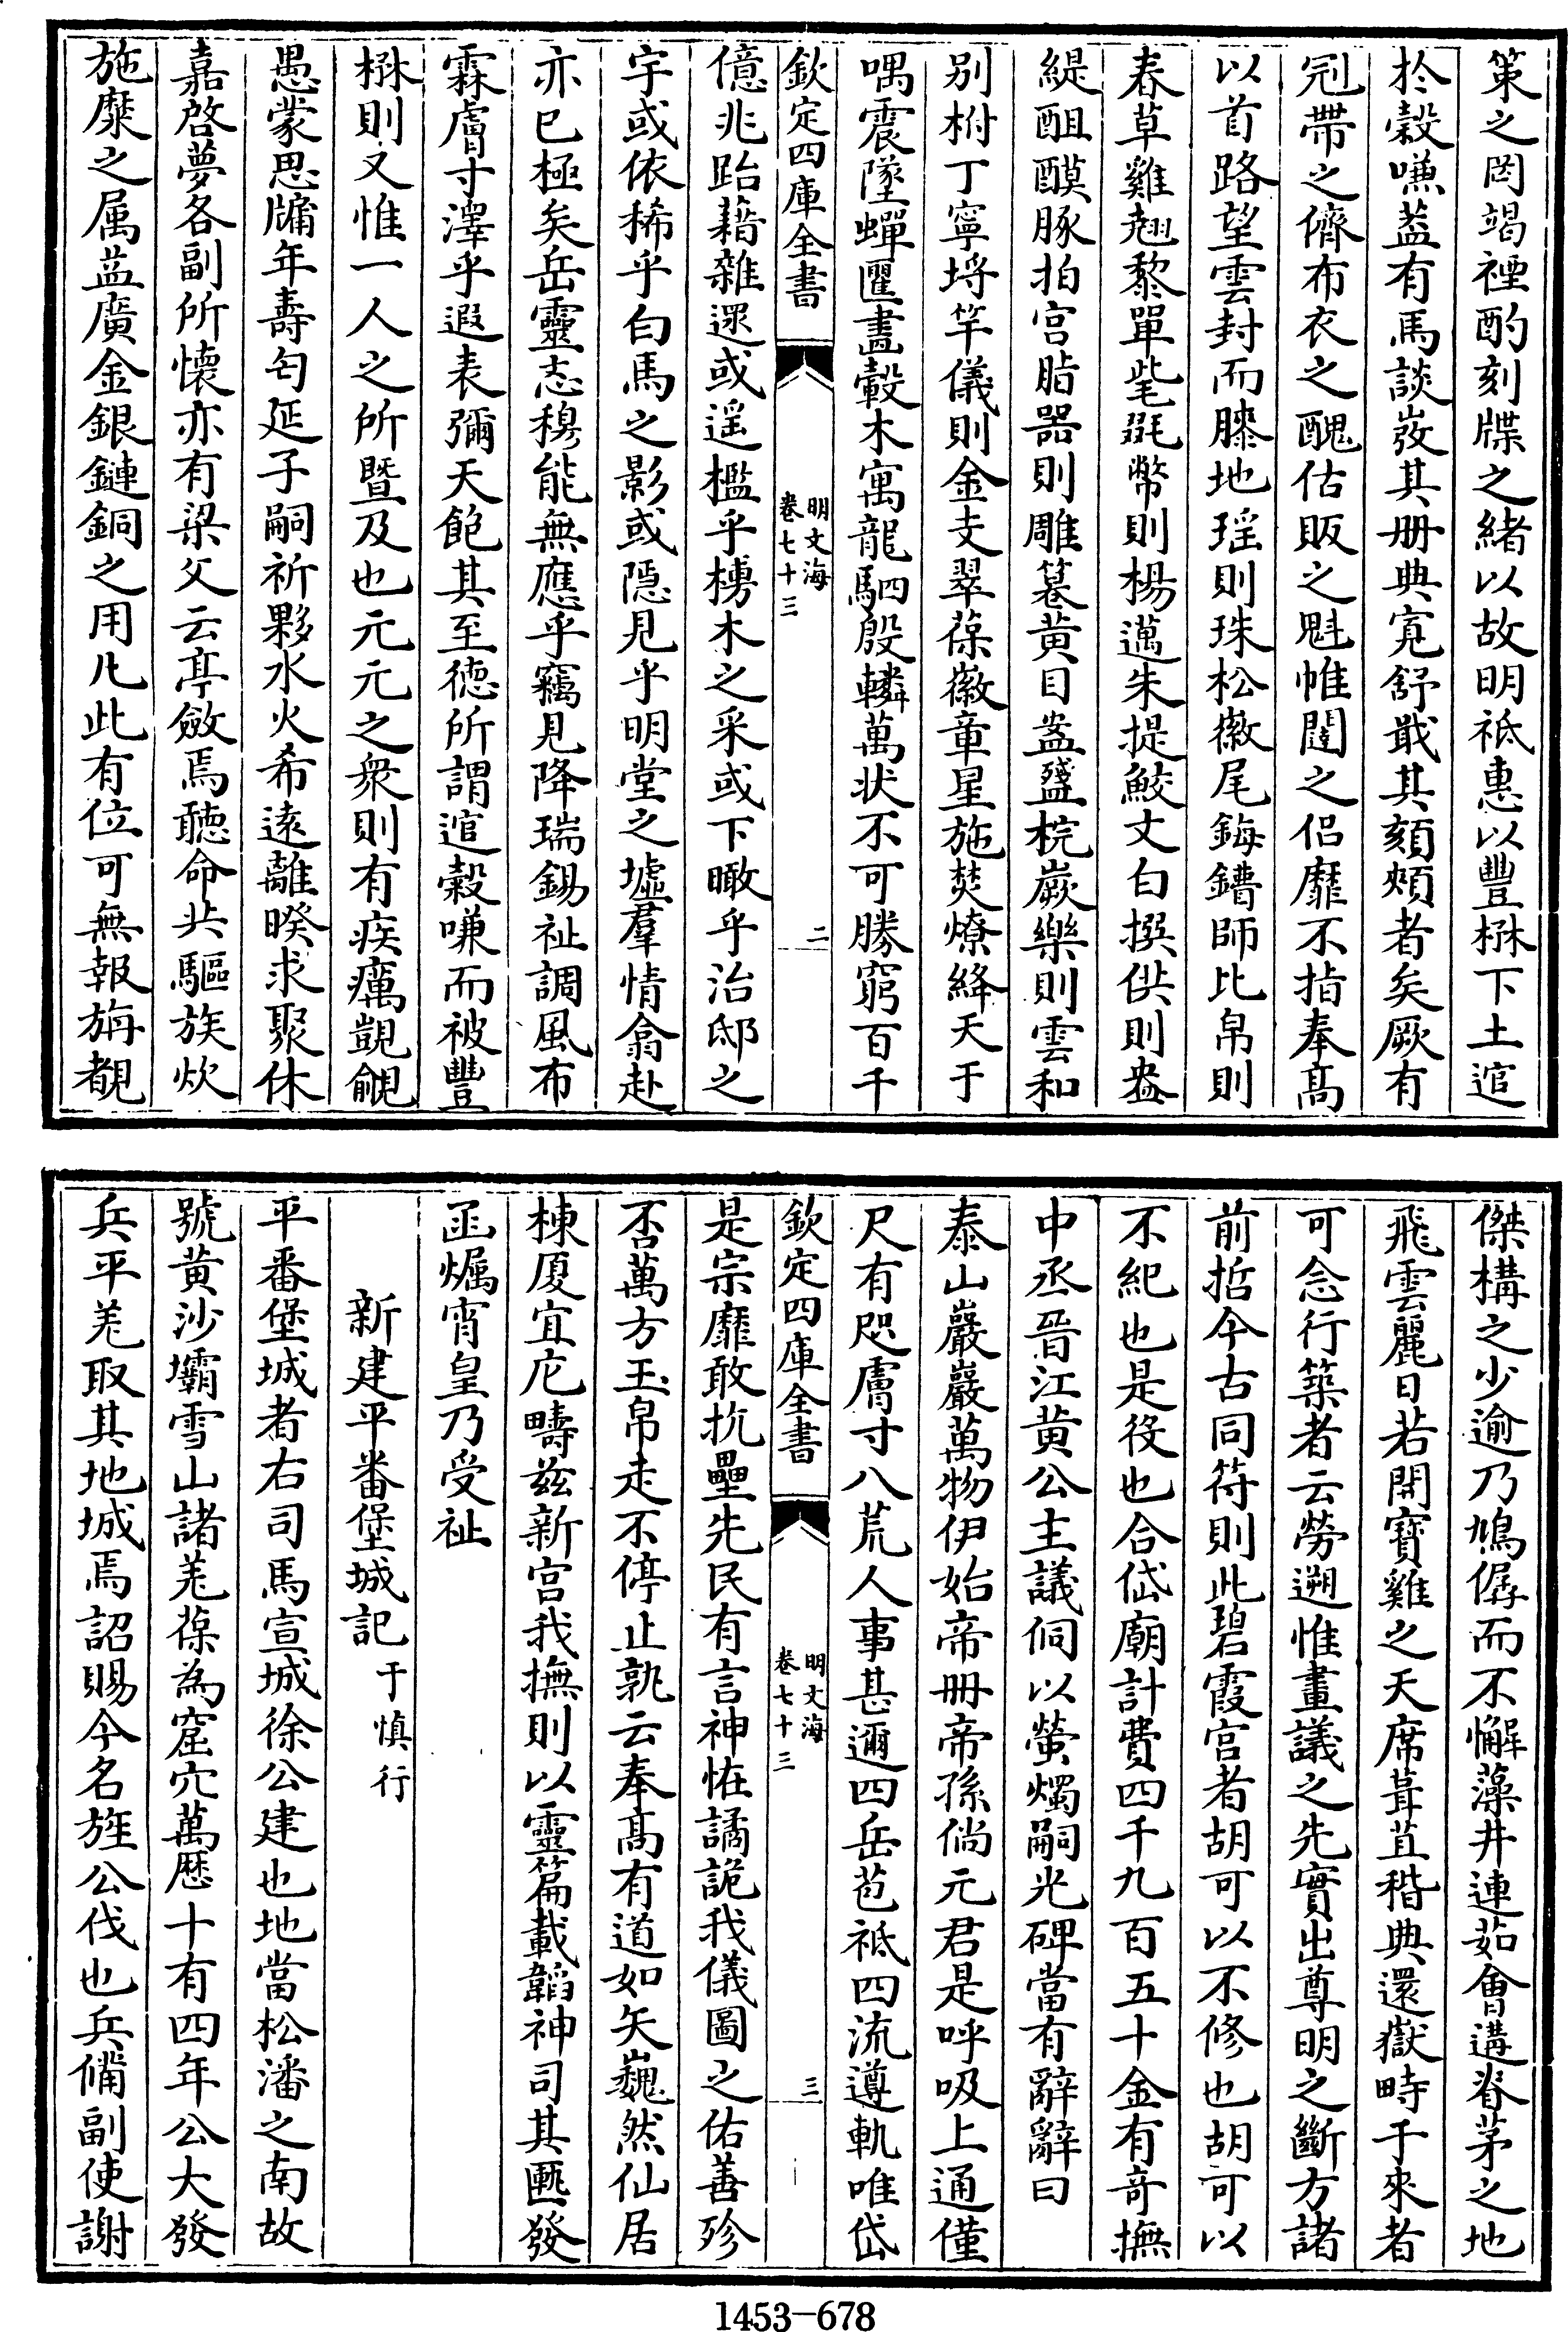 策之罔竭禋酌刻牒之緒以故明祗惠以豐楙下土逭
於穀嗛盖有馬談发其册典寛舒戢其頦頰者矣厥有
冠帶之儕布衣之醜估販之魁帷闥之侣靡不指奉髙
以首路望雲封而膝地瑶則珠松徽尾鋂鏪師比帛則
春草雞翹黎單毞毲幣則楊邁朱提鮫文白撰供則盎
緹醌醭豚拍宫脂器則雕篹黄目盎盞梡嶡樂則雲和
别柎丁寧埒竿儀則金支翠葆徽章星施焚燎絳天于
喁震墜蟬匰畫轂木寓龍駟殷轔萬状不可勝窮百千
欽定四庫全書
明文海
卷七十三
二
億兆跆藉雜遝或遥槛乎槫木之采或下瞰乎治邸之
宇或依稀乎白馬之影或隱見乎明堂之墟羣情翕赴
亦已極矣岳靈忞穆能無應乎竊見降瑞錫祉調風布
霖膚寸澤乎遐表彌天飽其至徳所謂逭穀嗛而被豐
楙則又惟一人之所暨及也元元之衆則有疾癘覬覦
愚蒙思牖年壽匄延子嗣祈夥水火希遠離暌求聚休
嘉啓夢各副所懷亦有梁父云亭斂焉聽命共驅族炊
施糜之属盖廣金銀鏈銅之用凡此有位可無報旃覩
傑構之少逾乃鳩僝而不懈藻井連茹㑹遘脊茅之地
飛雲麗日若開寳雞之天席葺苴稭典還嶽畤于來者
可念行築者云勞遡惟畫議之先實出尊明之斷方諸
前哲今古同符則此碧霞宫者胡可以不修也胡可以
不紀也是役也合岱廟計費四千九百五十金有竒撫
中丞晉江黄公主議侗以螢燭嗣光碑當有辭辭曰
泰山巖巖萬物伊始帝册帝孫倘元君是呼吸上通僅
尺有咫膚寸八荒人事甚邇四岳苞祗四流遵軌唯岱
欽定四庫全書
明文海
卷七十三
三
是宗靡敢抗壘先民有言神恠譎詭我儀圖之佑善殄
否萬方玉帛走不停止孰云奉髙有道如矢巍然仙居
棟厦宜庀疇兹新宫我撫則以靈篇載韜神司其匭發
函爥宵皇乃受祉
新建平番堡城記于慎行
平番堡城者右司馬宣城徐公建也地當松潘之南故
號黄沙壩雪山諸羌葆為窟穴萬歴十有四年公大發
兵平羌取其地城焉詔賜今名旌公伐也兵備副使謝
1453-678